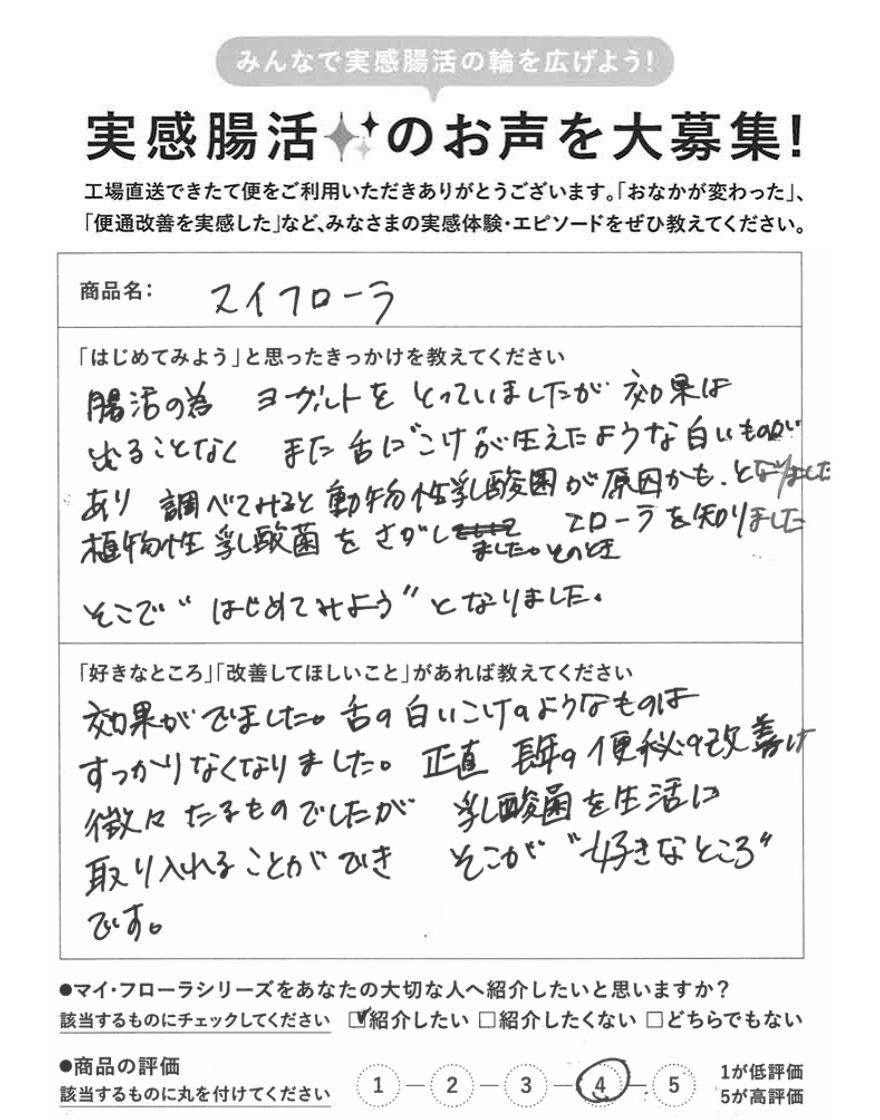 みんなで実感腸活の輪を広げよう!
実感腸活のお声を大募集!
工場直送できたて便をご利用いただきありがとうございます。「おなかが変わった」、
「便通改善を実感した」など、みなさまの実感体験・エピソードをぜひ教えてください。
商品名: スイフローラ
「はじめてみよう」と思ったきっかけを教えてください
腸活の為 ヨーグルトを とっていましたが 効果は
出ることなく また 舌に"こけ"が 生えたような 白いものが
あり 調べてみると 動物性乳酸菌が 原因かも、となりました
植物性 乳酸菌を さがし ました。そのとき フローラを知りました
そこで "はじめてみよう" となりました。
「好きなところ」「改善してほしいこと」があれば教えてください
効果が でました。舌の 白いこけのようなものは
すっかりなくなりました。正直 長年の 便秘の改善は
微々たるものでしたが 乳酸菌を生活に
取り入れることができ そこが "好きなところ"
です。
●マイ・フローラシリーズをあなたの大切な人へ紹介したいと思いますか?
該当するものにチェックしてください ☑紹介したい □紹介したくない □どちらでもない
●商品の評価
該当するものに丸を付けてください 1 2 3 4 5 1が低評価
5が高評価